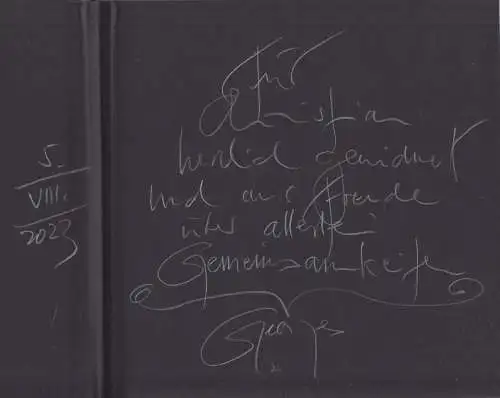 5.
VIII.
2023
Für
Christian
herzlich gewidmet
und aus Freude
über allerlei
Gemeinsamkeiten
Georges